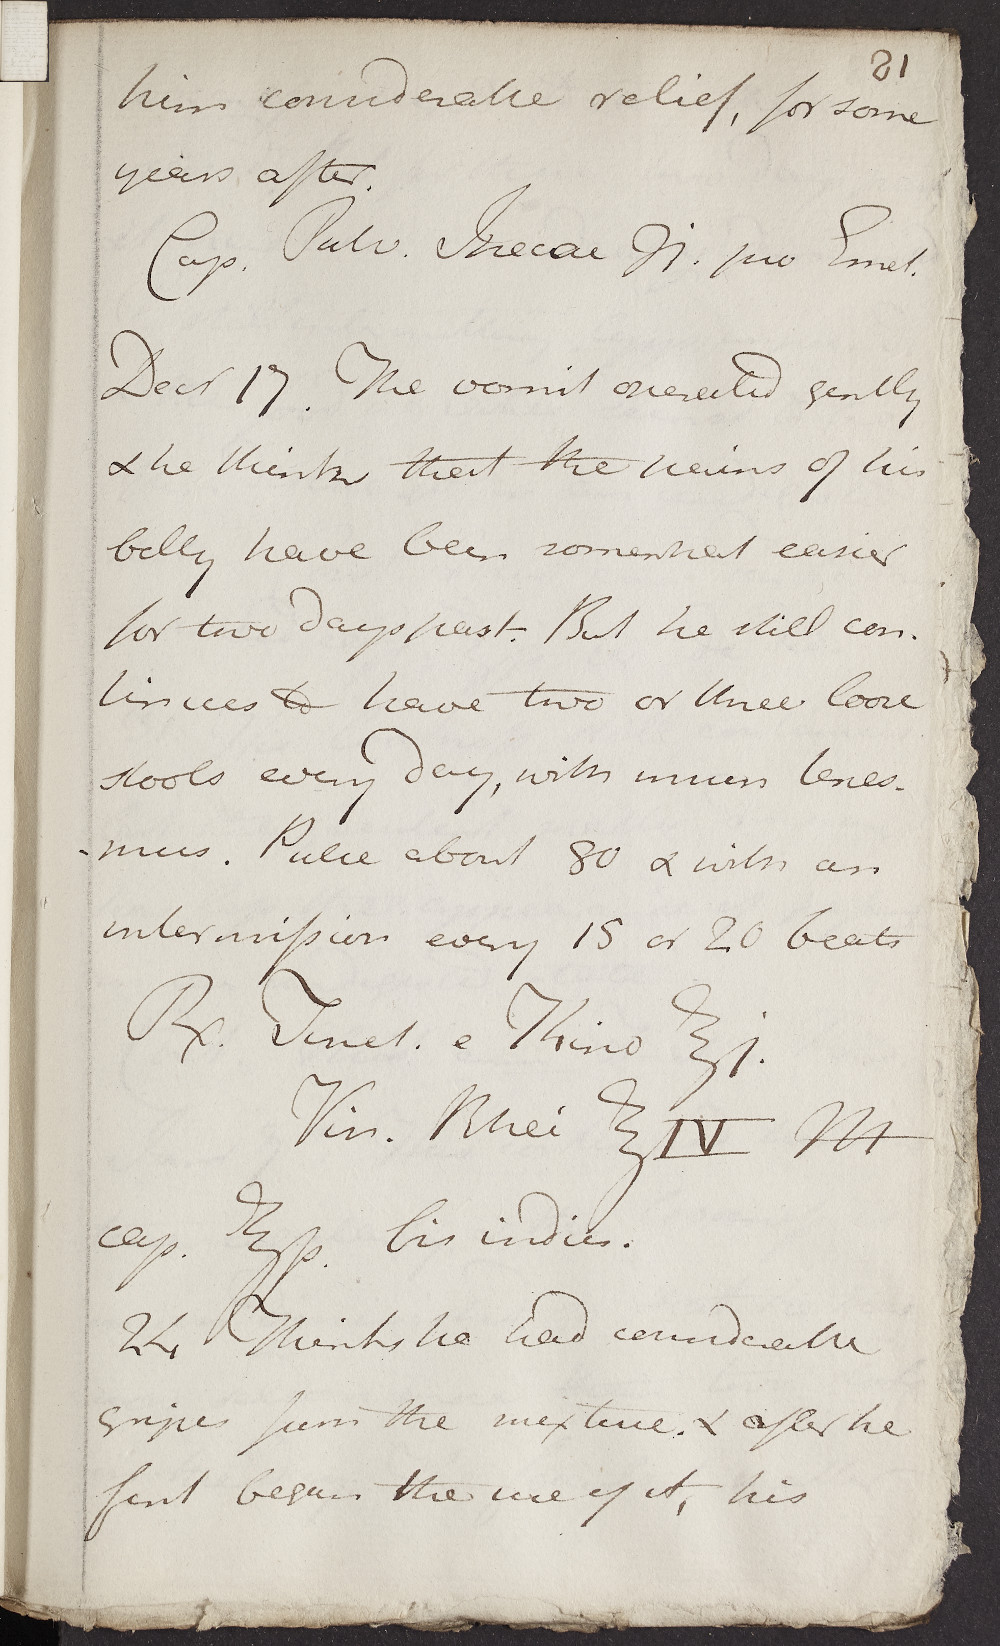 81
him considerable relief, for some
years after.
Cap. Pulv. Ipecac ℈j. pro Emet.
Decr 17. The vomit operated gently
& he thinks that the pains of his
belly have been somewhat easier
for two days past. But he still con-
tinues to have two or three loose
stools every day, with much tenes-
-mus. Pulse about 80 & with an
intermiſsion every 15 or 20 beats
Rx. Tinct. e Kino ℥j.
Vin. Rhei ℥IV M
cap. ℥ſs. bis indies.
24 Thinks he had considerable
gripes from the mixture. & after he
first began the use of it, his